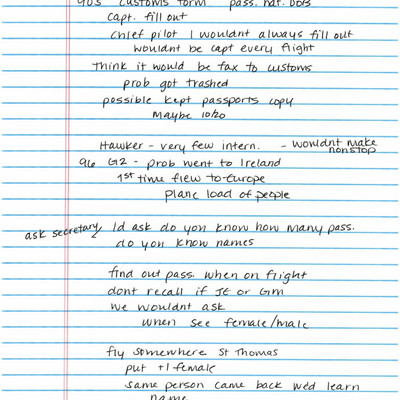 90s customs form pass. nat. DOBs
Capt. fill out
chief pilot I wouldnt always fill out
wouldnt be capt every flight
Think it would be fax to customs
prob got trashed
possible kept passports copy
Maybe 10/20
Hawker - very few intern. - wouldnt make nonstop
96 G2 - prob went to Ireland
1st time flew to Europe
plane load of people
ask secretary, Id ask do you know how many pass.
do you know names
find out pass. when on flight
dont recall if JE or GM
we wouldnt ask
when see female/male
fly somewhere St Thomas
put +1 female
same person came back wed learn
name